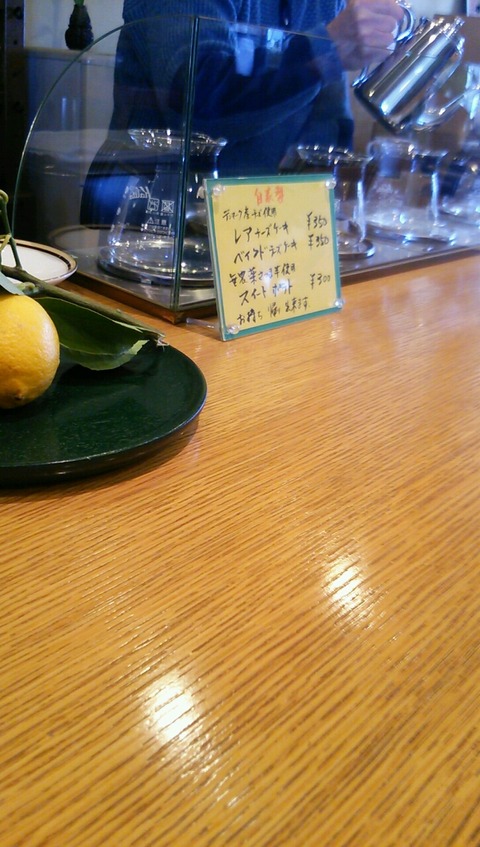 自家製
デンマーク産チーズ使用
レアチーズケーキ ¥350
ベイクドチーズケーキ ¥350
無農薬さつま芋使用
スイートポテト ¥300
お持ち帰り出来ます。